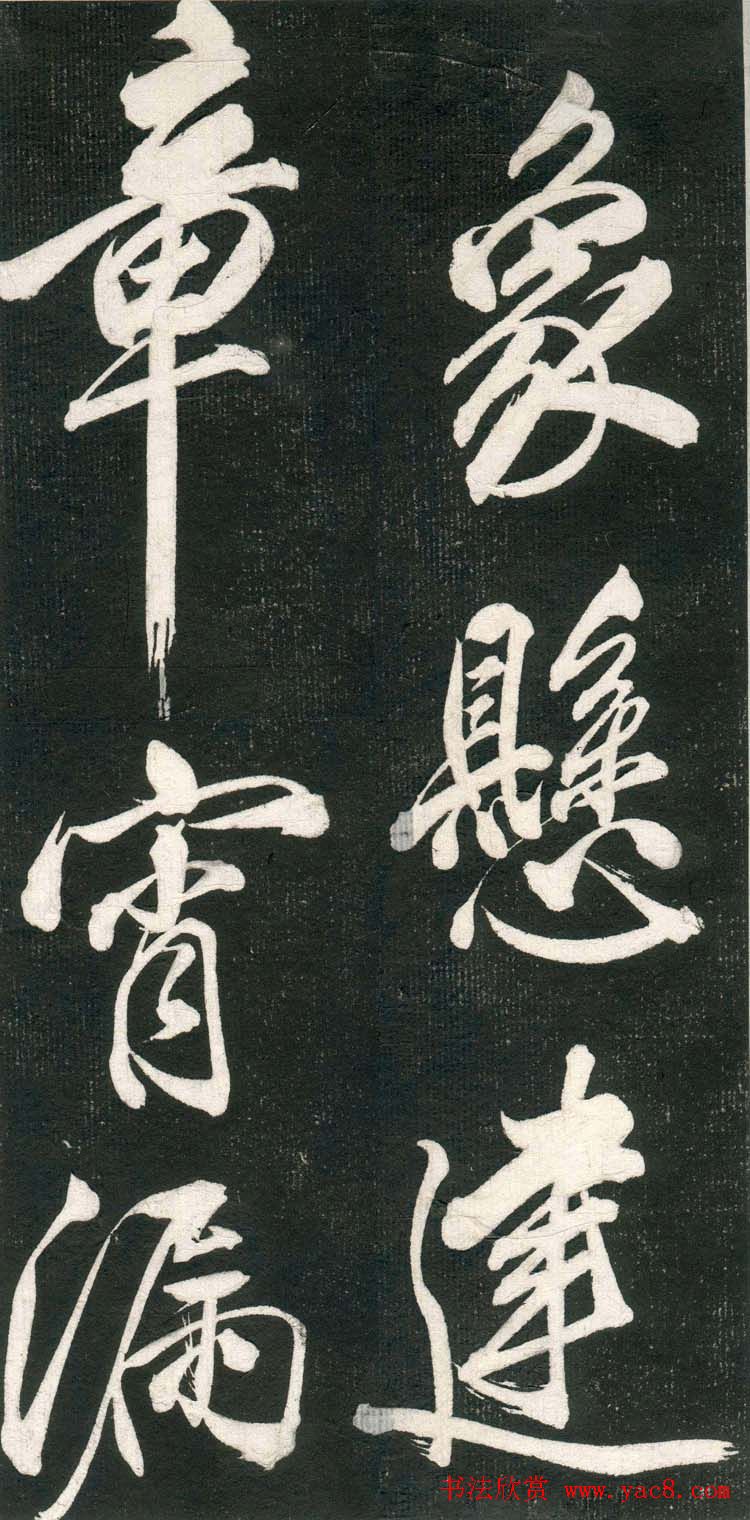 象懸建
章宵漏
书法欣赏 www.yac8.com